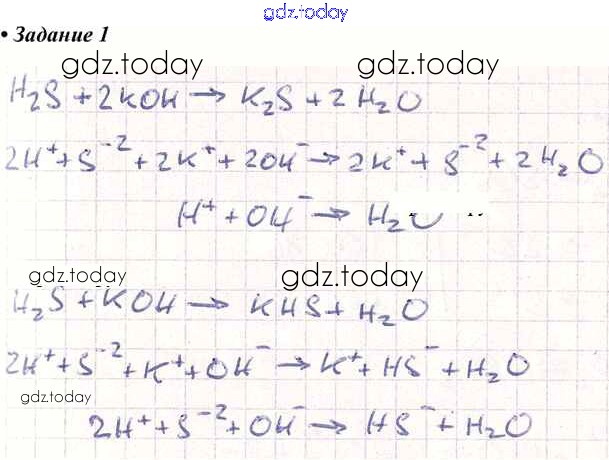 gdz.today
• Задание 1
gdz.today gdz.today
H₂S + 2KOH → K₂S + 2H₂O
2H⁺ + S⁻² + 2K⁺ + 2OH⁻ → 2K⁺ + S⁻² + 2H₂O
H⁺ + OH⁻ → H₂O
gdz.today gdz.today
H₂S + KOH → KHS + H₂O
2H⁺ + S⁻² + K⁺ + OH⁻ → K⁺ + HS⁻ + H₂O
gdz.today
2H⁺ + S⁻² + OH⁻ → HS⁻ + H₂O